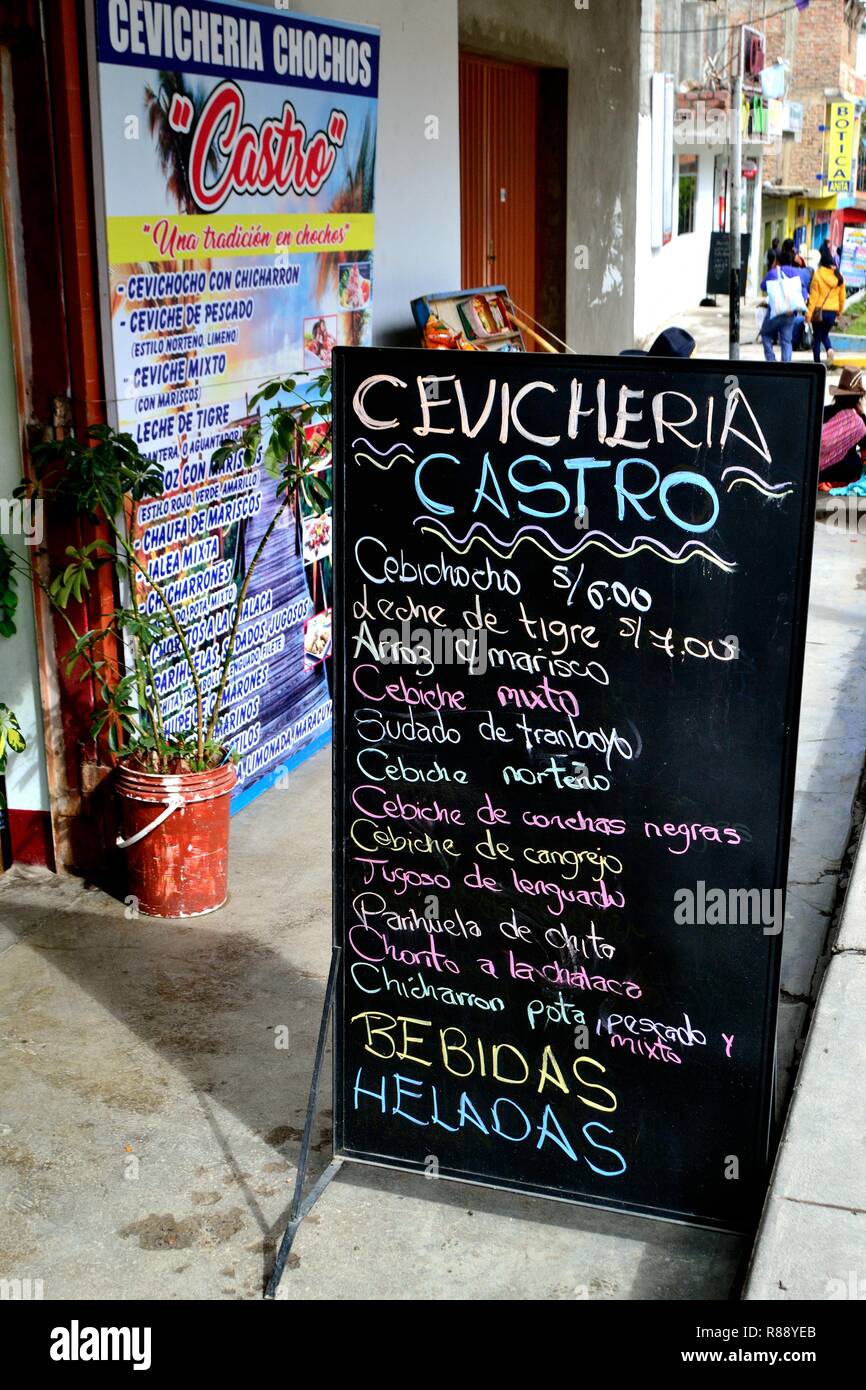 CEVICHERIA CHOCHOS
"Castro"
"Una tradición en chochos"
- CEVICHOCHO CON CHICHARRON
- CEVICHE DE PESCADO
(ESTILO NORTEÑO, LIMEÑO)
- CEVICHE MIXTO
(CON MARISCOS)
LECHE DE TIGRE
O AGUANTADOR
(ESTILO ROJO, VERDE, AMARILLO)
- CHAUFA DE MARISCOS
JALEA MIXTA
CHICHARRONES
A LA CHALACA
SUDADOS JUGOSOS
LIMONADA, MARACUYA
BOTICA
ANITA
CEVICHERIA
CASTRO
Cebichocho S/6.00
Leche de tigre S/7.00
Arroz c/ marisco
Cebiche mixto
Sudado de tranboyo
Cebiche norteño
Cebiche de conchas negras
Cebiche de cangrejo
Jugoso de lenguado
Parihuela de chita
Chorito a la chalaca
Chicharron pota, pescado y
mixto
BEBIDAS
HELADAS
alamy
Image ID: R88YEB
www.alamy.com